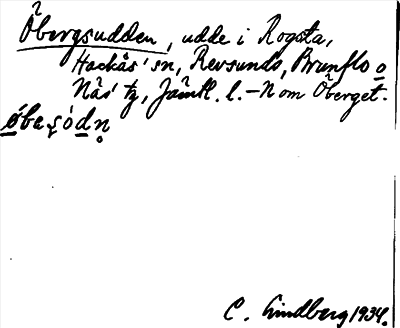 Öbergsudden, udde i Rogsta,
Hackås' sn, Revsunds, Brunflo o
Näs' tg, Jämtl. l. – N om Öberget.
C. Lindberg 1934.